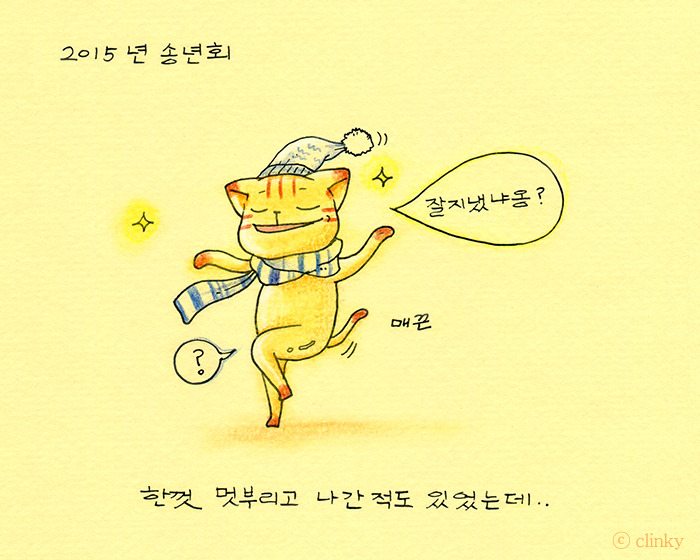 2015년 송년회
잘지냈냐옹?
매끈
?
한껏 멋부리고 나간적도 있었는데..
ⓒ clinky